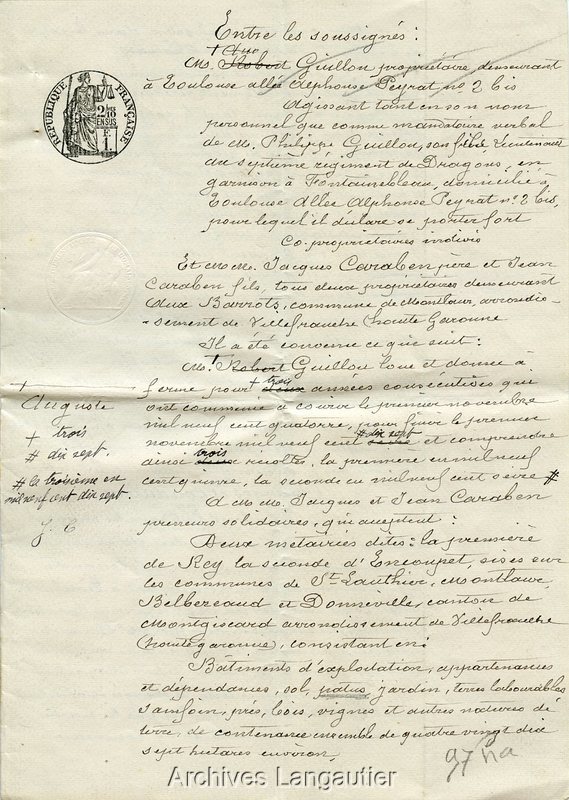 Entre les soussignés :
+ Aug
M. Robert Guillon, propriétaire, demeurant
à Toulouse allée Alphonse Peyrat no 2 bis
Agissant tant en son nom
personnel que comme mandataire verbal
de M. Philippe Guillon, son frère, lieutenant
au septième régiment de Dragons, en
garnison à Fontainebleau, domicilié à
Toulouse Allée Alphonse Peyrat no 2 bis,
pour lequel il déclare se porter fort
Co-propriétaires indivis
RÉPUBLIQUE FRANÇAISE
Et MM. Jacques Caraben père et Jean
Caraben fils, tous deux propriétaires demeurant
aux Barrots, commune de Montlaur, arrondis-
-sement de Villefranche (haute Garonne
Il a été convenu ce qui suit :
M. + Robert Guillon loue et donne à
ferme pour + trois deux années consécutives qui
ont commencé à courir le premier novembre
mil neuf cent quatorze, pour finir le premier
novembre mil neuf cent # dix sept seize et comprendre
ainsi trois deux récoltes, la première en mil neuf
cent quinze, la seconde en mil neuf cent seize #
+
Auguste
+ trois
# dix sept
# la troisième en
mil neuf cent dix sept.
J. C
à MM. Jacques et Jean Caraben
preneurs solidaires, qui acceptent :
Deux métairies dites : la première
de Rey la seconde d'Encoupet, sises sur
les communes de St Lauthier, Montlaur,
Belbereaud et Donneville, canton de
Montgiscard arrondissement de Villefranche
(haute garonne), consistant en :
Bâtiments d'exploitation, appartenances
et dépendances, sol, patus jardin, terres labourables
sainfoin, prés, bois, vignes et autres natures de
terre, de contenance ensemble de quatre vingt dix
sept hectares environ.
97 ha
Archives Langautier